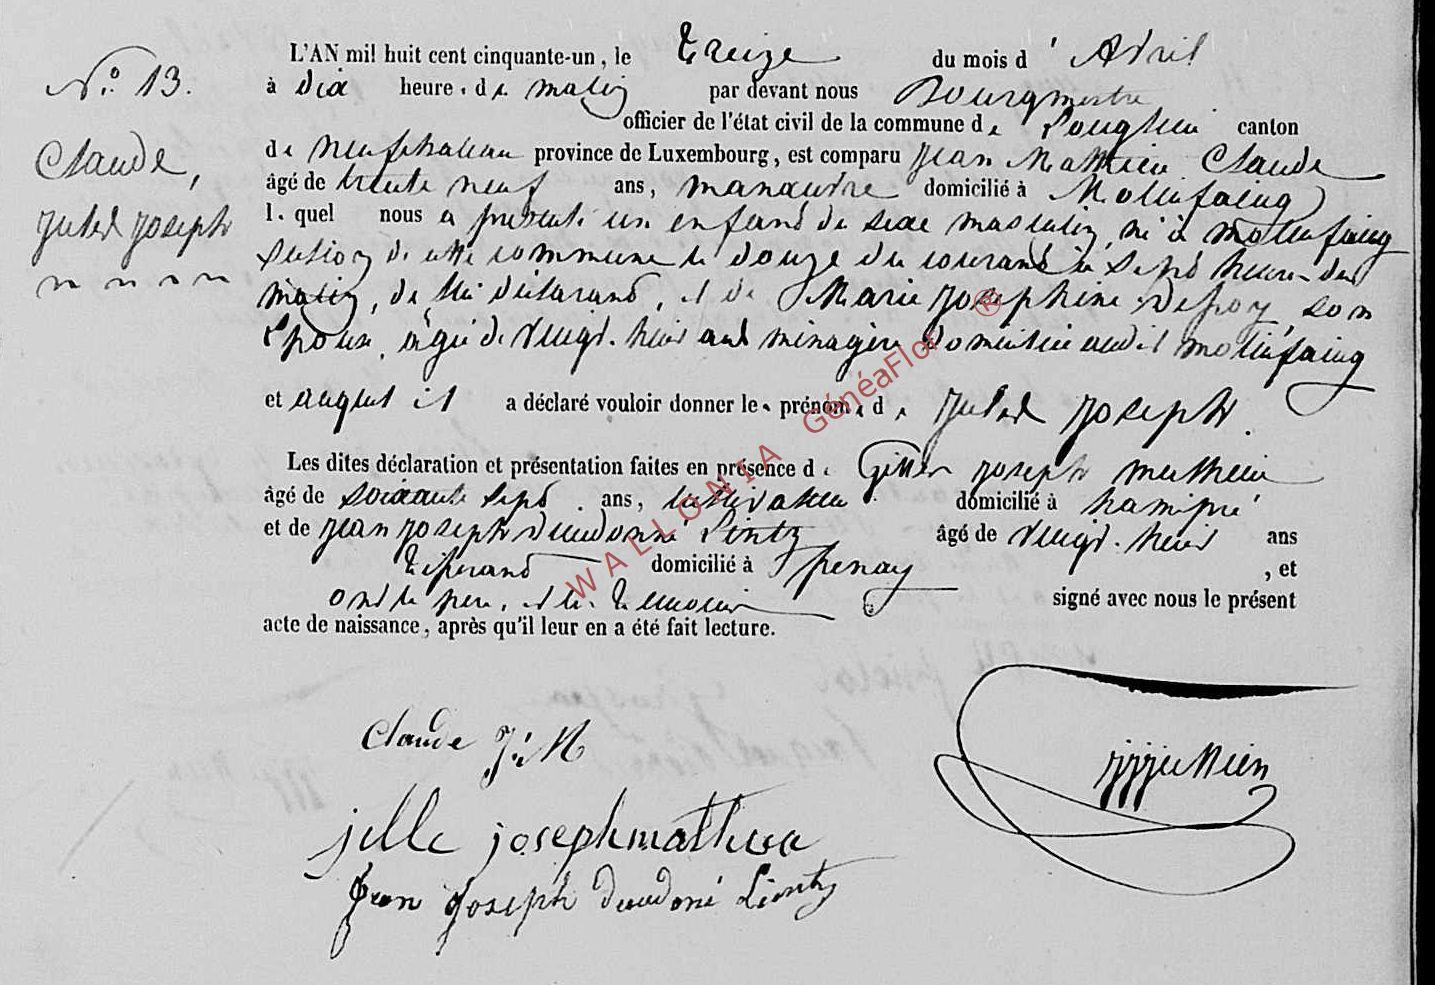 N.° 13.
Claude,
Jules Joseph
L'AN mil huit cent cinquante-un, le Treize du mois d' Avril
à dix heure. de matin par devant nous Bourgmestre
officier de l'état civil de la commune de Longlier canton
de neufchateau province de Luxembourg, est comparu Jean Mathieu Claude
âgé de trente neuf ans, manœuvre domicilié à Mollifaing
l. quel nous a presenté un enfand de sexe masculin, né à mollifaing
section de cette commune le douze du courand à sept heures du
matin, de lui déclarand, et de Marie Josephine Defoy, son
Epouse, agée de vingt-huit ans ménagère domiciliée audit mollifaing
et auquel il a déclaré vouloir donner les prénoms de Jules Joseph.
Les dites déclaration et présentation faites en présence de Joseph mathieu
âgé de soixante sept ans, cultivateur domicilié à hamipré
et de Jean Joseph dieudonné Lintz âgé de vingt-huit ans
Tisserand domicilié à , et
ond le pere, et les temoins signé avec nous le présent
acte de naissance, après qu'il leur en a été fait lecture.
Claude J: M
jille joseph mathieu
Jean Joseph dieudoné Lientz
WALLONIA GénéaFlor ®